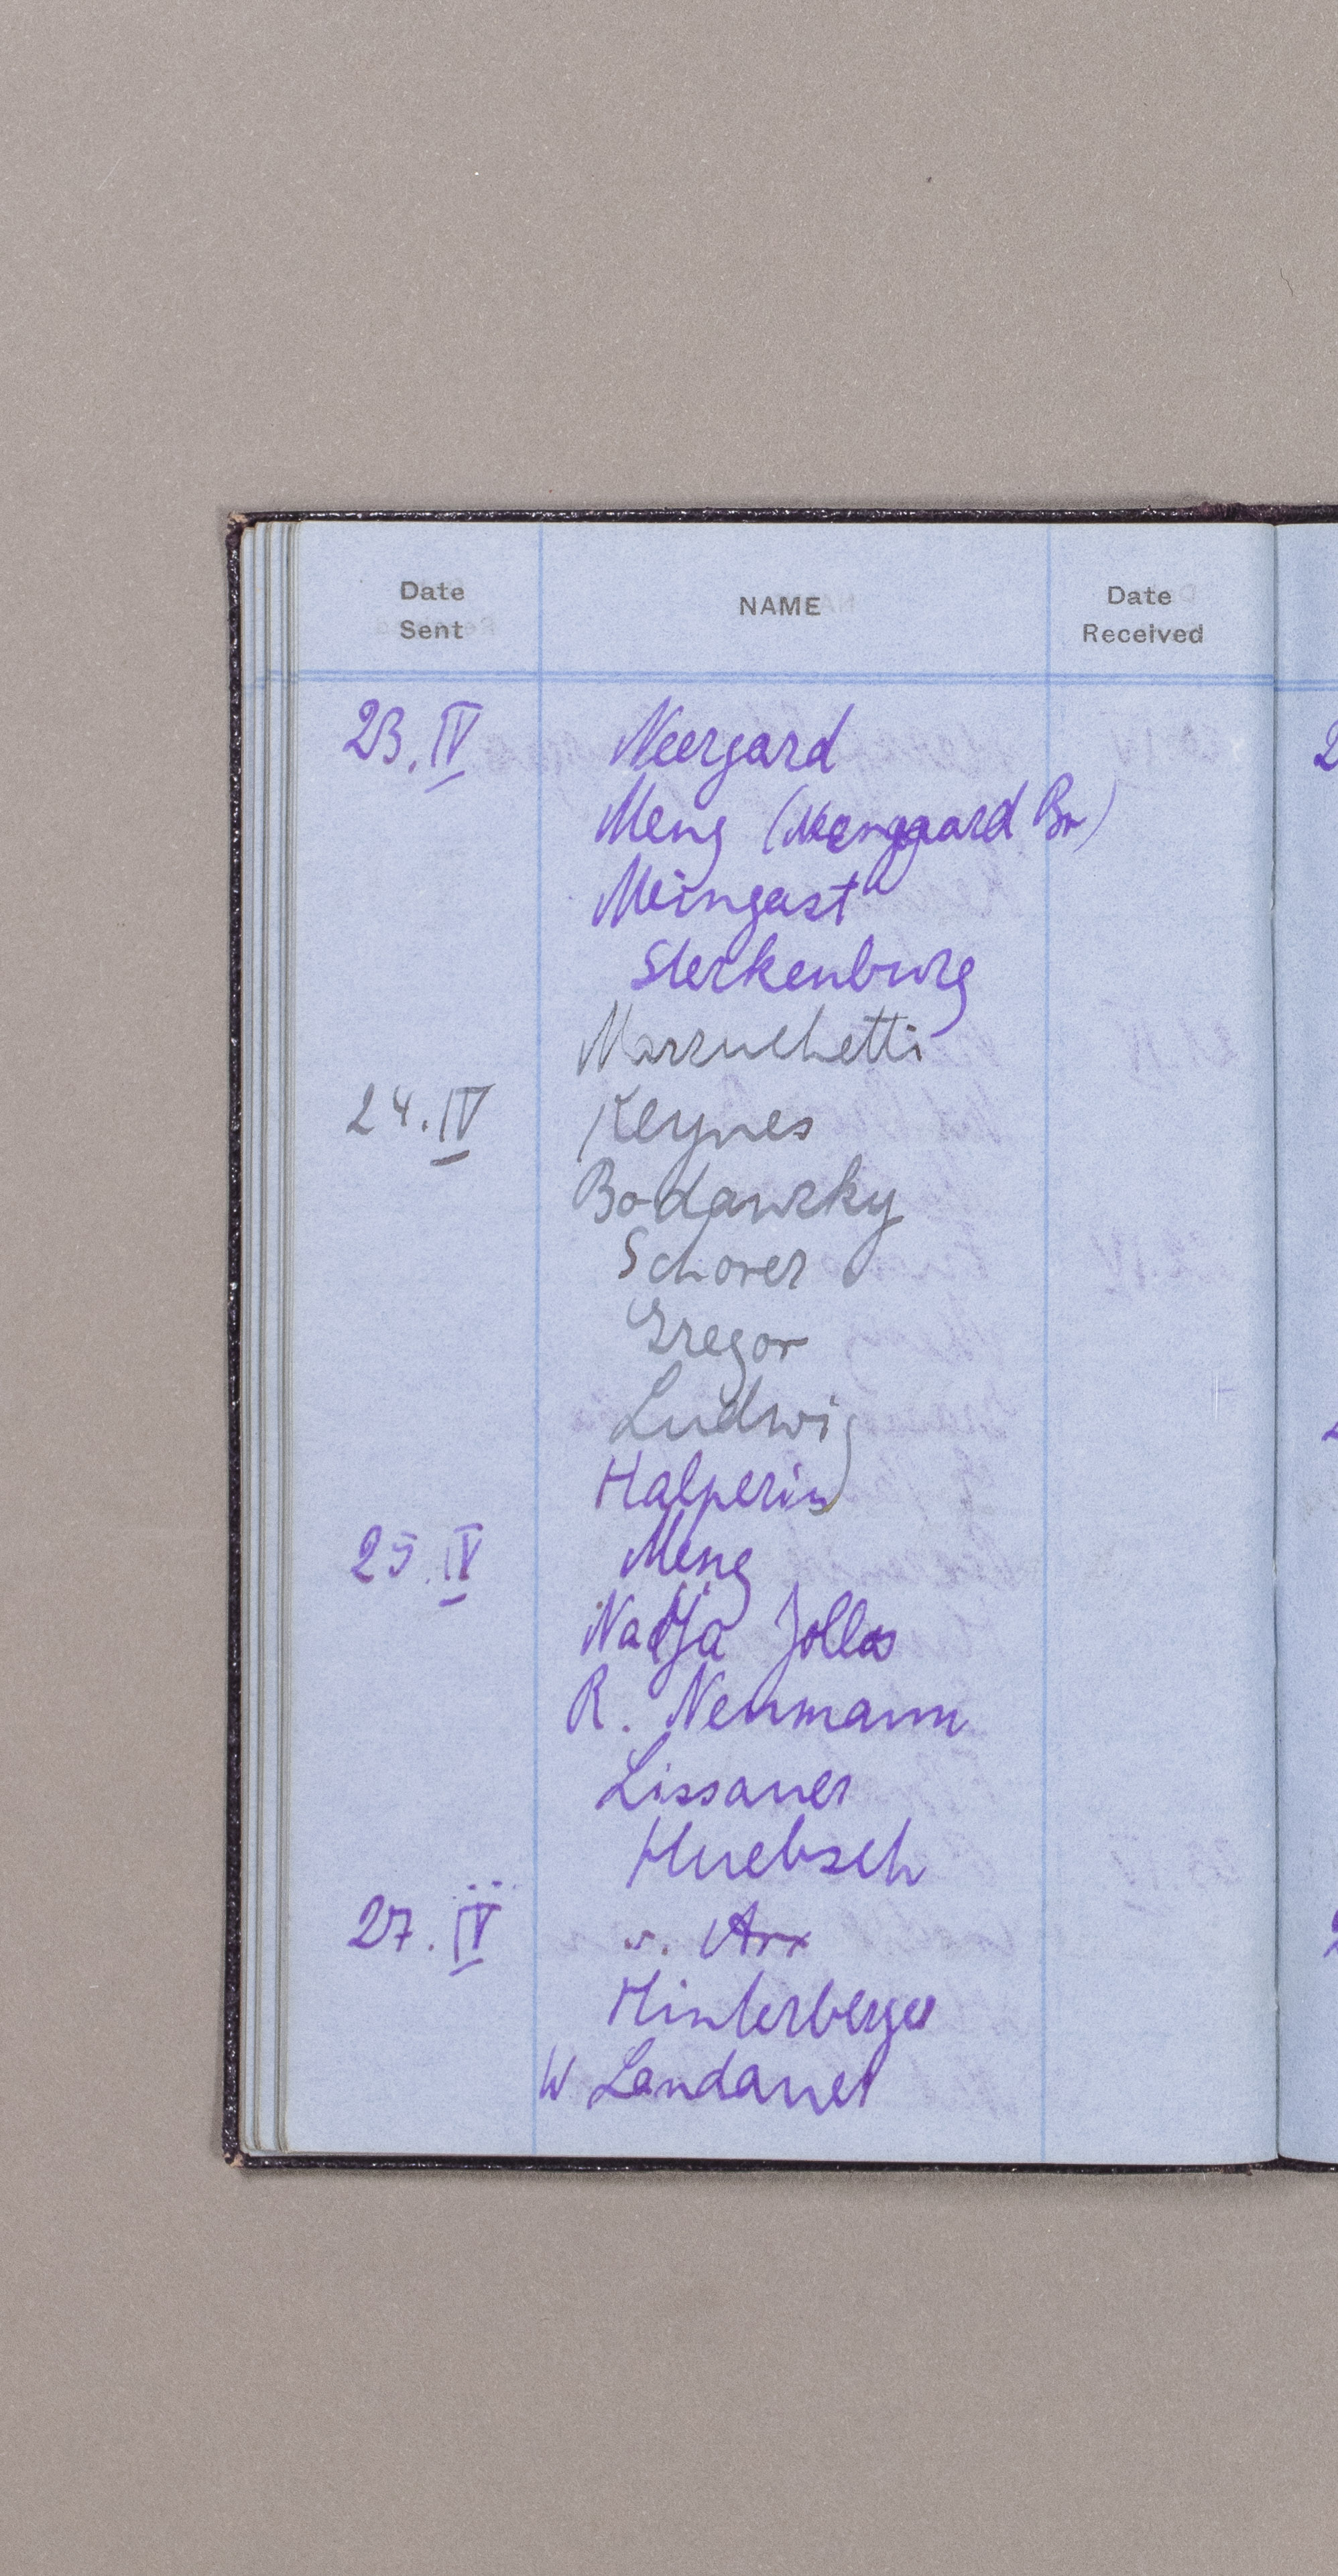 Date Sent NAME Date Received
23. IV Neergard
Meng (Neergaard Br)
Meingast
Sterkenburg
Marzuchetti
24. IV Keynes
Bodansky
Schorer
Gregor
Ludwig
Halperin
25. IV Meng
Nadja Jollos
R. Neumann
Lissauer
Huebsch
27. IV v. Arx
Hinterberger
W Landauer